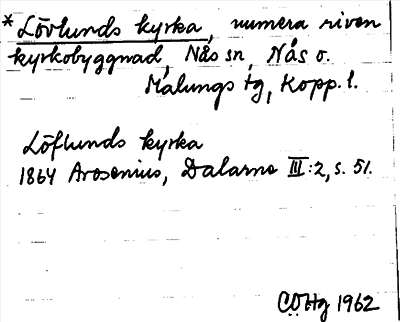 * Lövlunds kyrka, numera riven
kyrkobyggnad, Nås sn, Nås o.
Malungs tg, Kopp. l.
Löflunds kyrka
1864 Arosenius, Dalarne III:2, s. 51.
CÖHg 1962